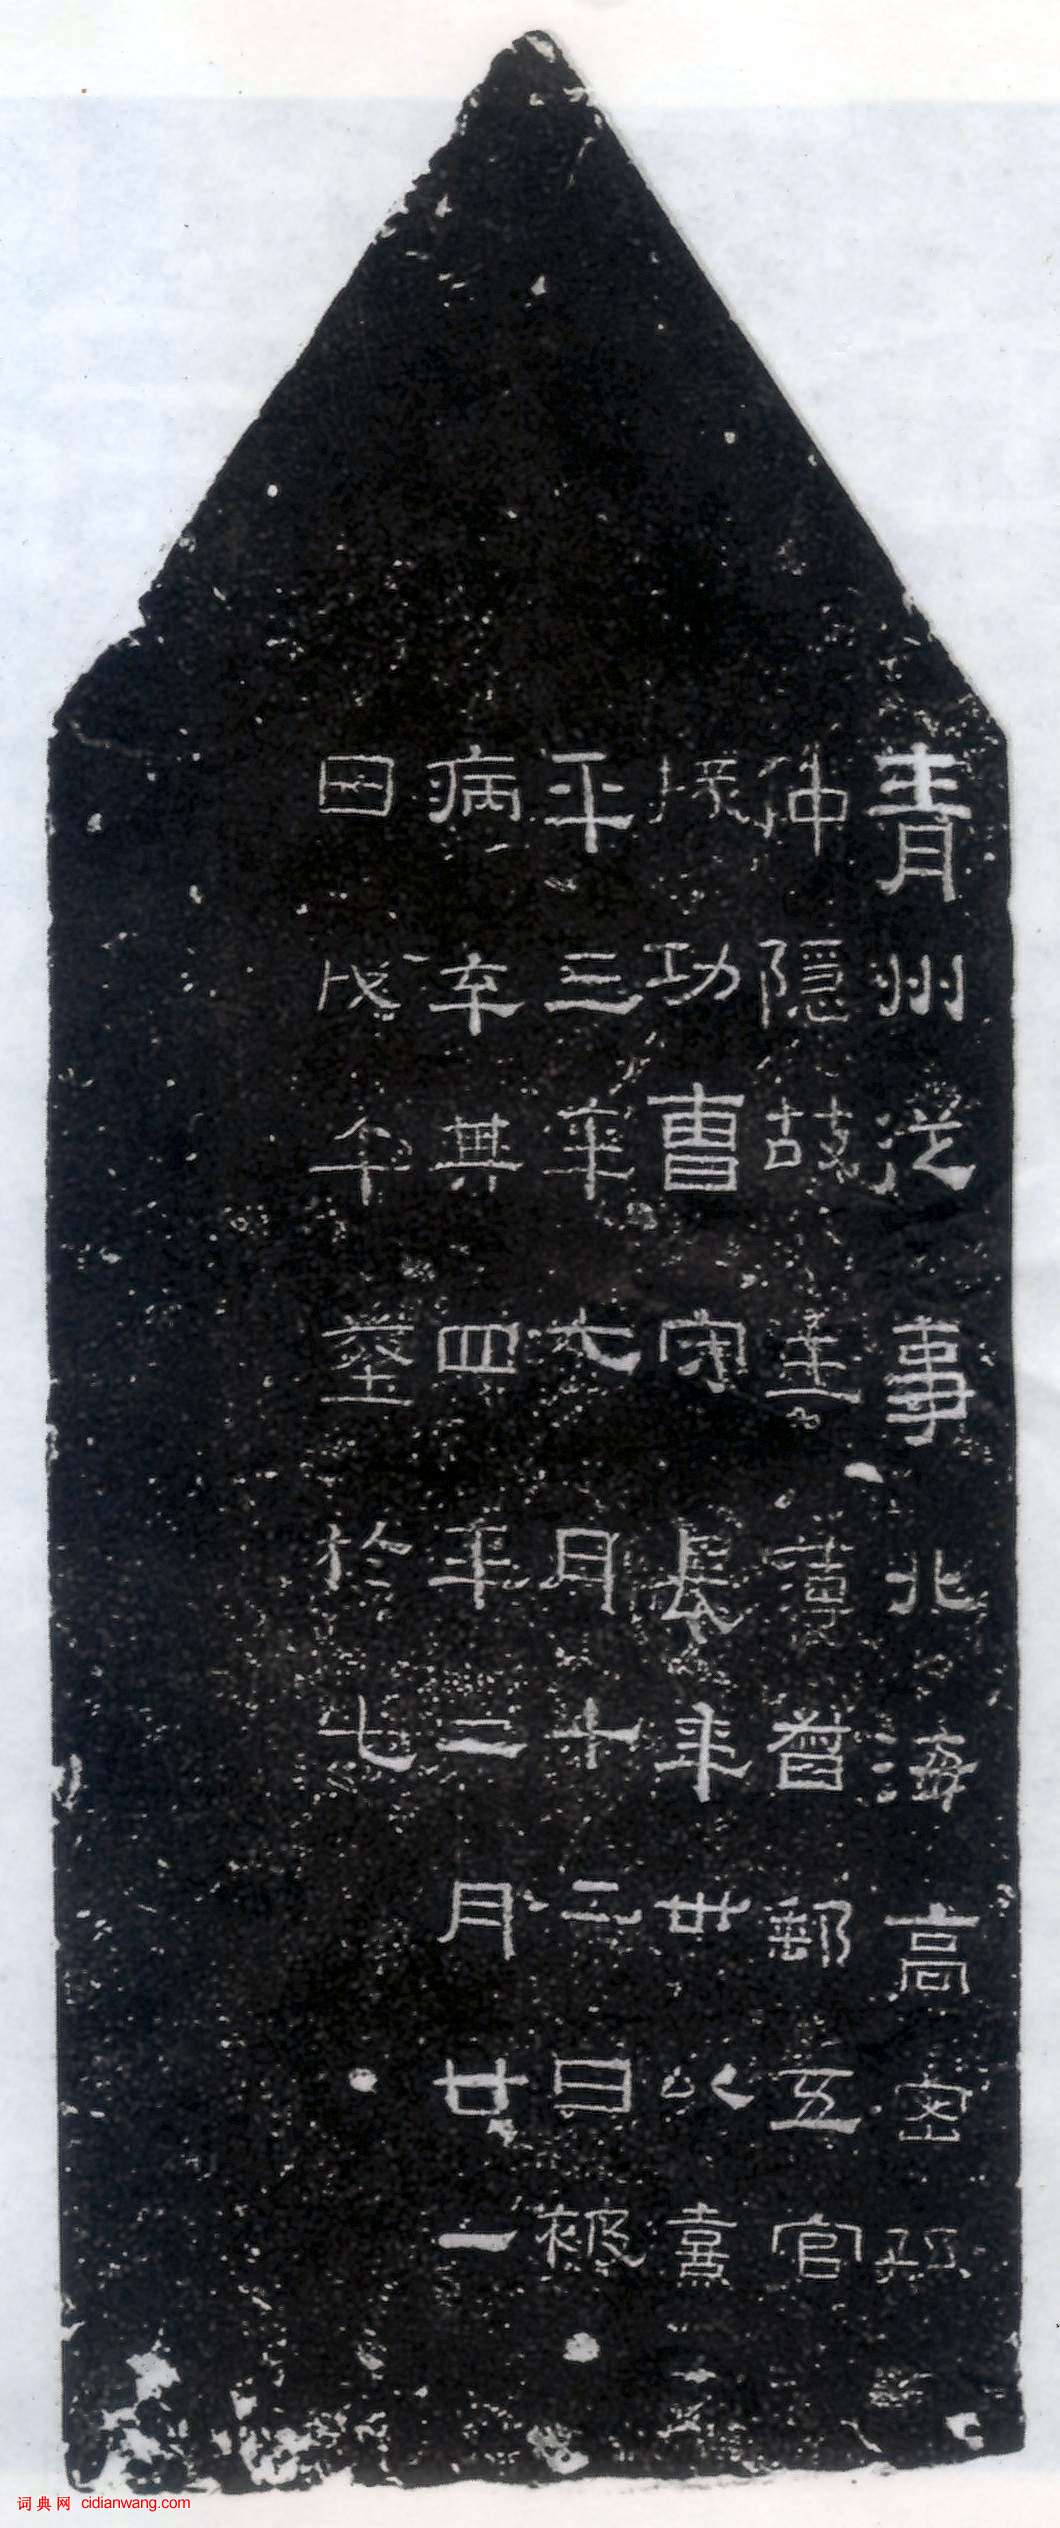 青州從事北海高密孫
仲隱故主簿督郵五官
掾功曹守長年卅以熹
平三年七月十二日被
病卒其四年二月廿一
日戊午塟於七
词典网 cidianwang.com